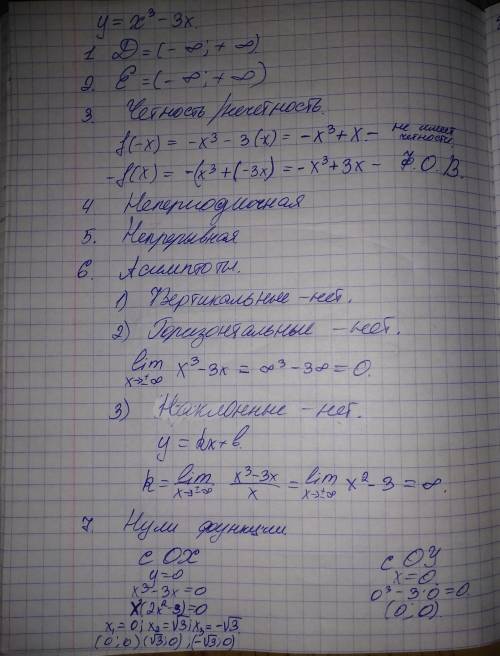 y = x³ - 3x.
1. D = (-∞; +∞)
2. E = (-∞; +∞)
3. Четность/нечетность.
f(-x) = -x³ - 3(x) = -x³ + x - не имеет четности.
-f(x) = -(x³ + (-3x) = -x³ + 3x - Ф.О.В.
4 Непериодичная
5. Непрерывная
6. Асимптоты.
1) Вертикальные - нет.
2) Горизонтальные - нет.
lim x→±∞ x³ - 3x = ∞³ - 3∞ = 0.
3) Наклонные - нет.
y = kx + b.
k = lim x→±∞ (x³ - 3x)/x = lim x→±∞ x² - 3 = ∞.
7. Нули функции.
с OX с OY
y = 0 x = 0.
x³ - 3x = 0 0³ - 3·0 = 0.
x(2x² - 3) = 0 (0; 0).
x₁ = 0; x₂ = √3; x₃ = -√3.
(0; 0) (√3; 0), (-√3; 0)